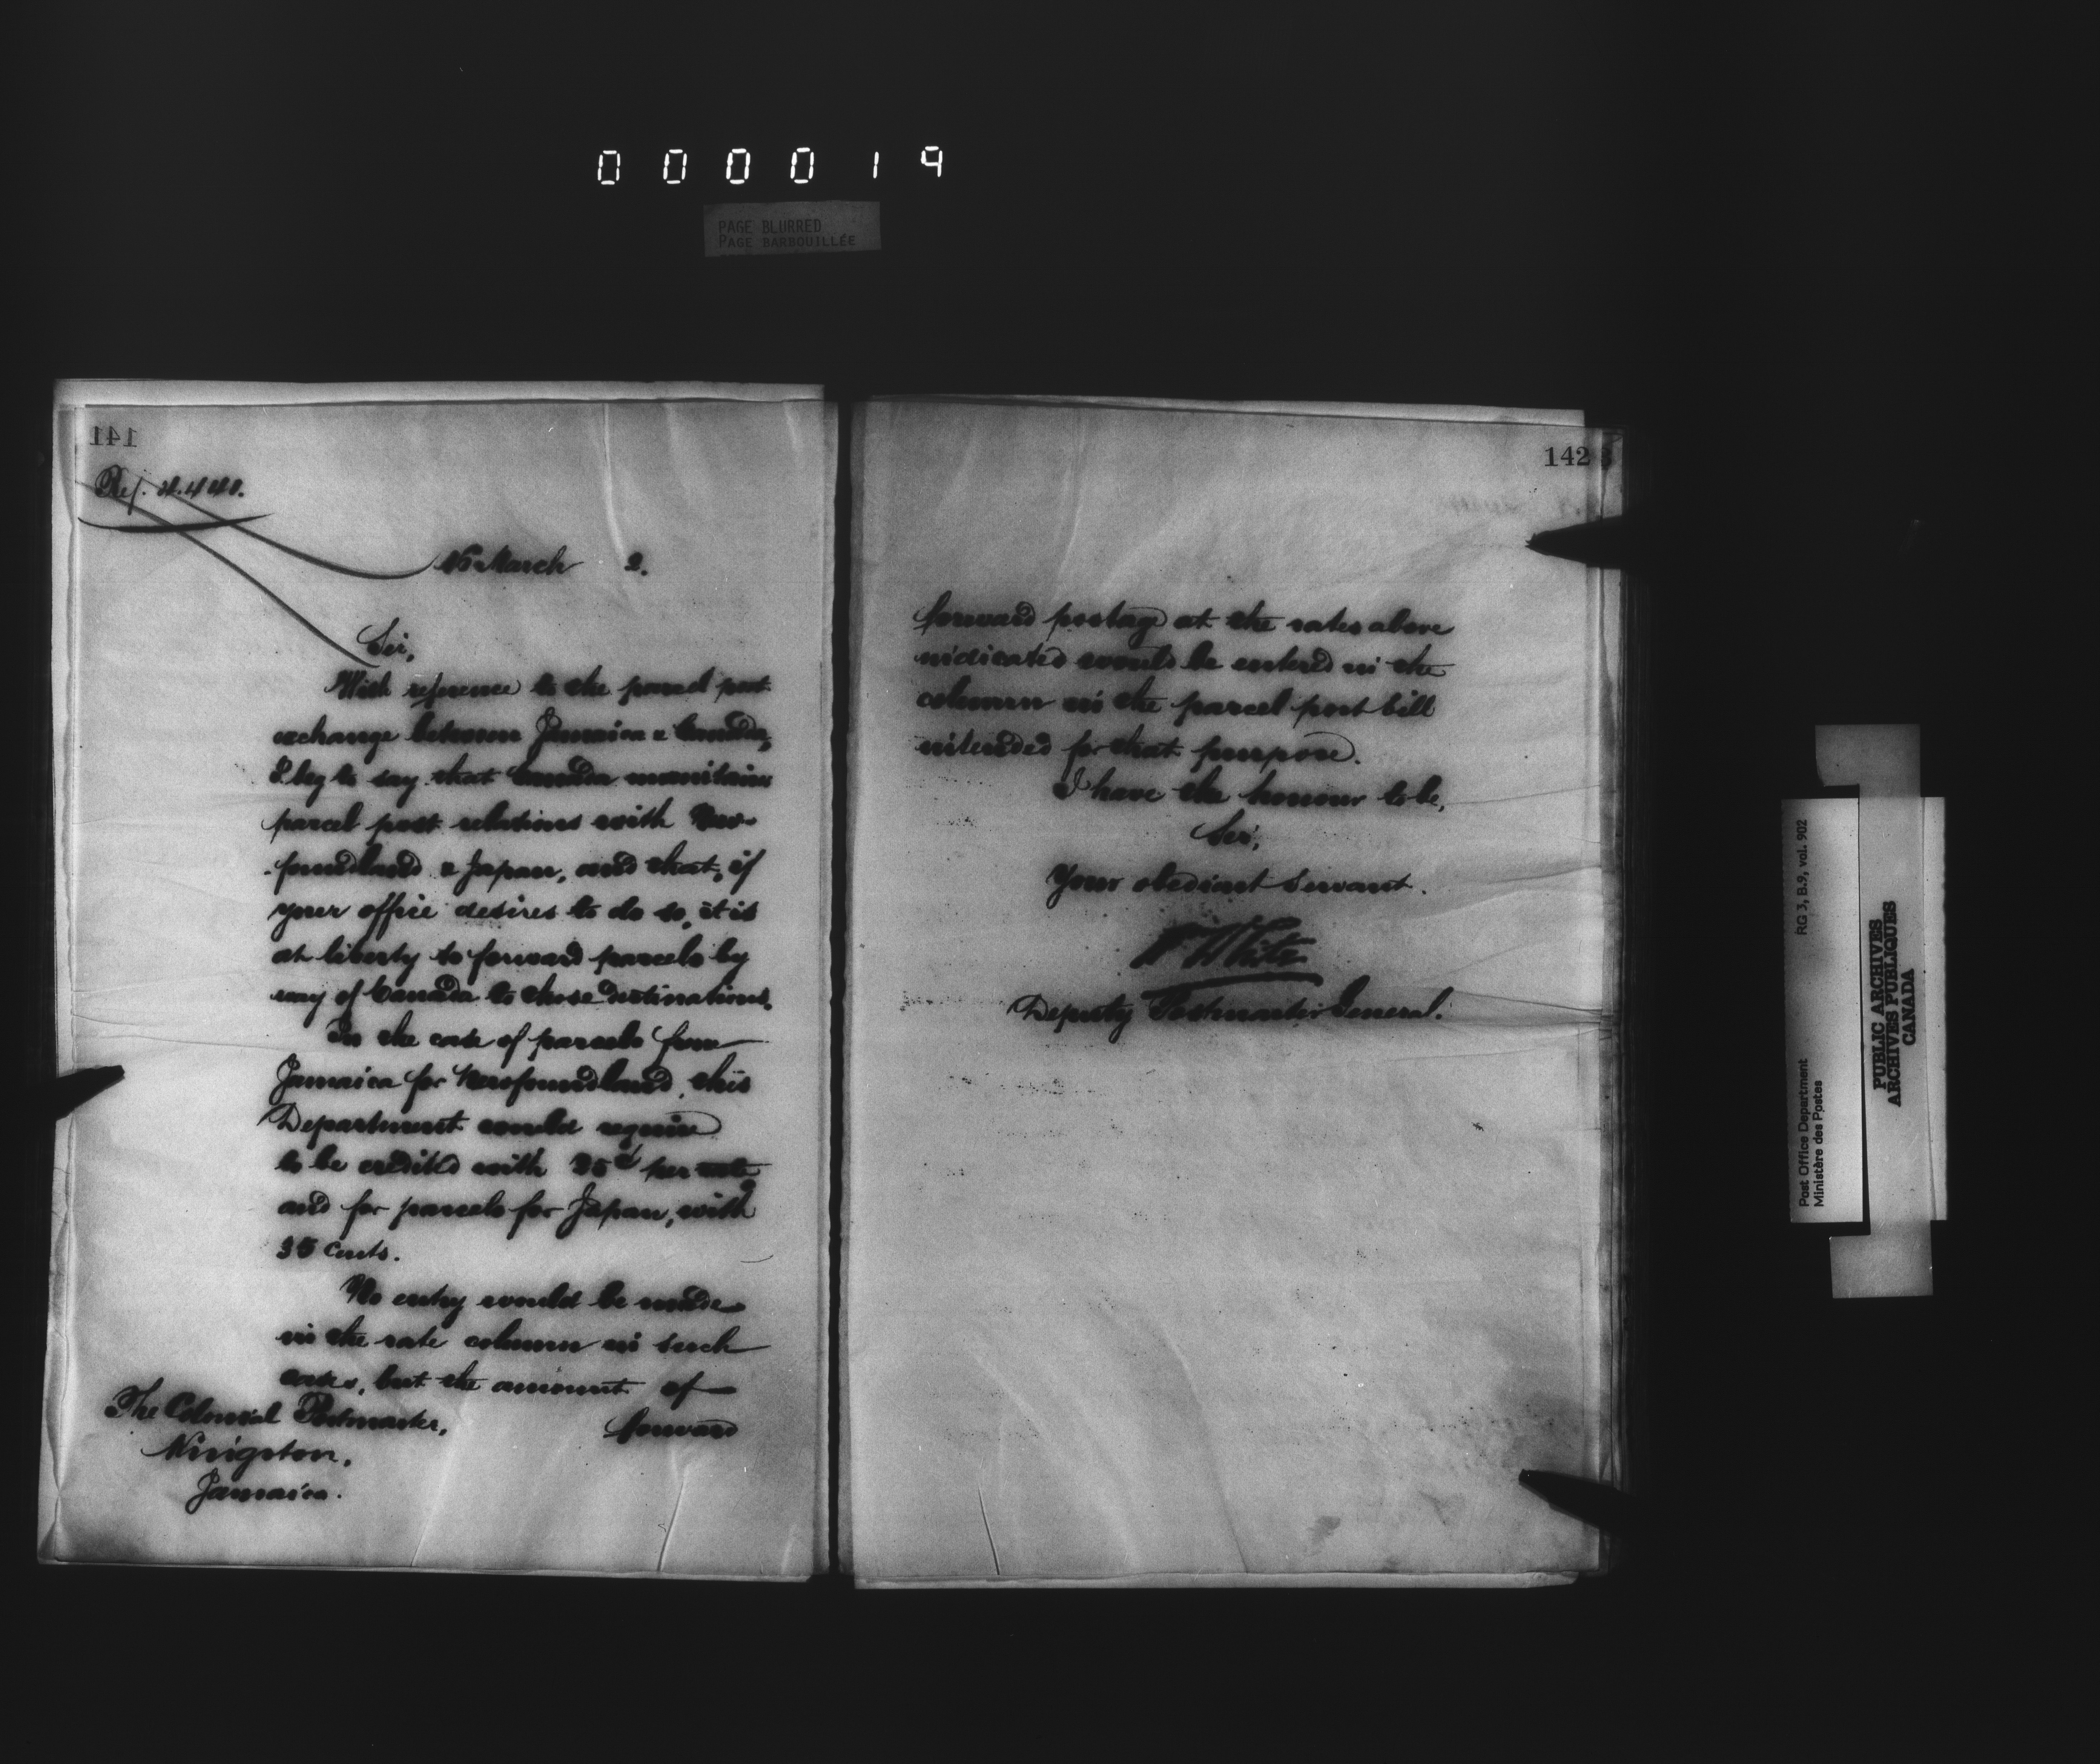 000019
PAGE BLURRED
PAGE BARBOUILLÉE
141
Ref.
March 2.
Sir,
With reference to the parcel post
exchange between Jamaica & Canada,
I beg to say that Canada maintains
parcel post relations with New-
-foundland & Japan, and that, if
your office desires to do so, it is
at liberty to forward parcels by
way of Canada to those destinations.
In the case of parcels from
Jamaica for Newfoundland, this
Department would require
to be credited with per
and for parcels for Japan, with
35 cents.
No entry would be made
in the rate column in such
cases, but the amount of
forward
The Colonial Postmaster,
Kingston,
Jamaica.
142
forward postage at the rates above
indicated would be entered in the
column in the parcel post bill
intended for that purpose.
I have the honour to be,
Sir,
Your obedient Servant.
W White
Deputy Postmaster General.
RG 3, B.9, vol. 902
Post Office Department
Ministère des Postes
PUBLIC ARCHIVES
ARCHIVES PUBLIQUES
CANADA